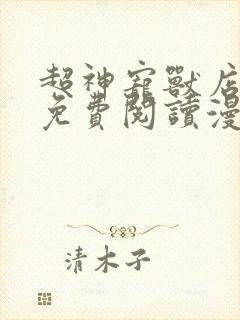 超神寵獸店
免費閱讀漫
清木子